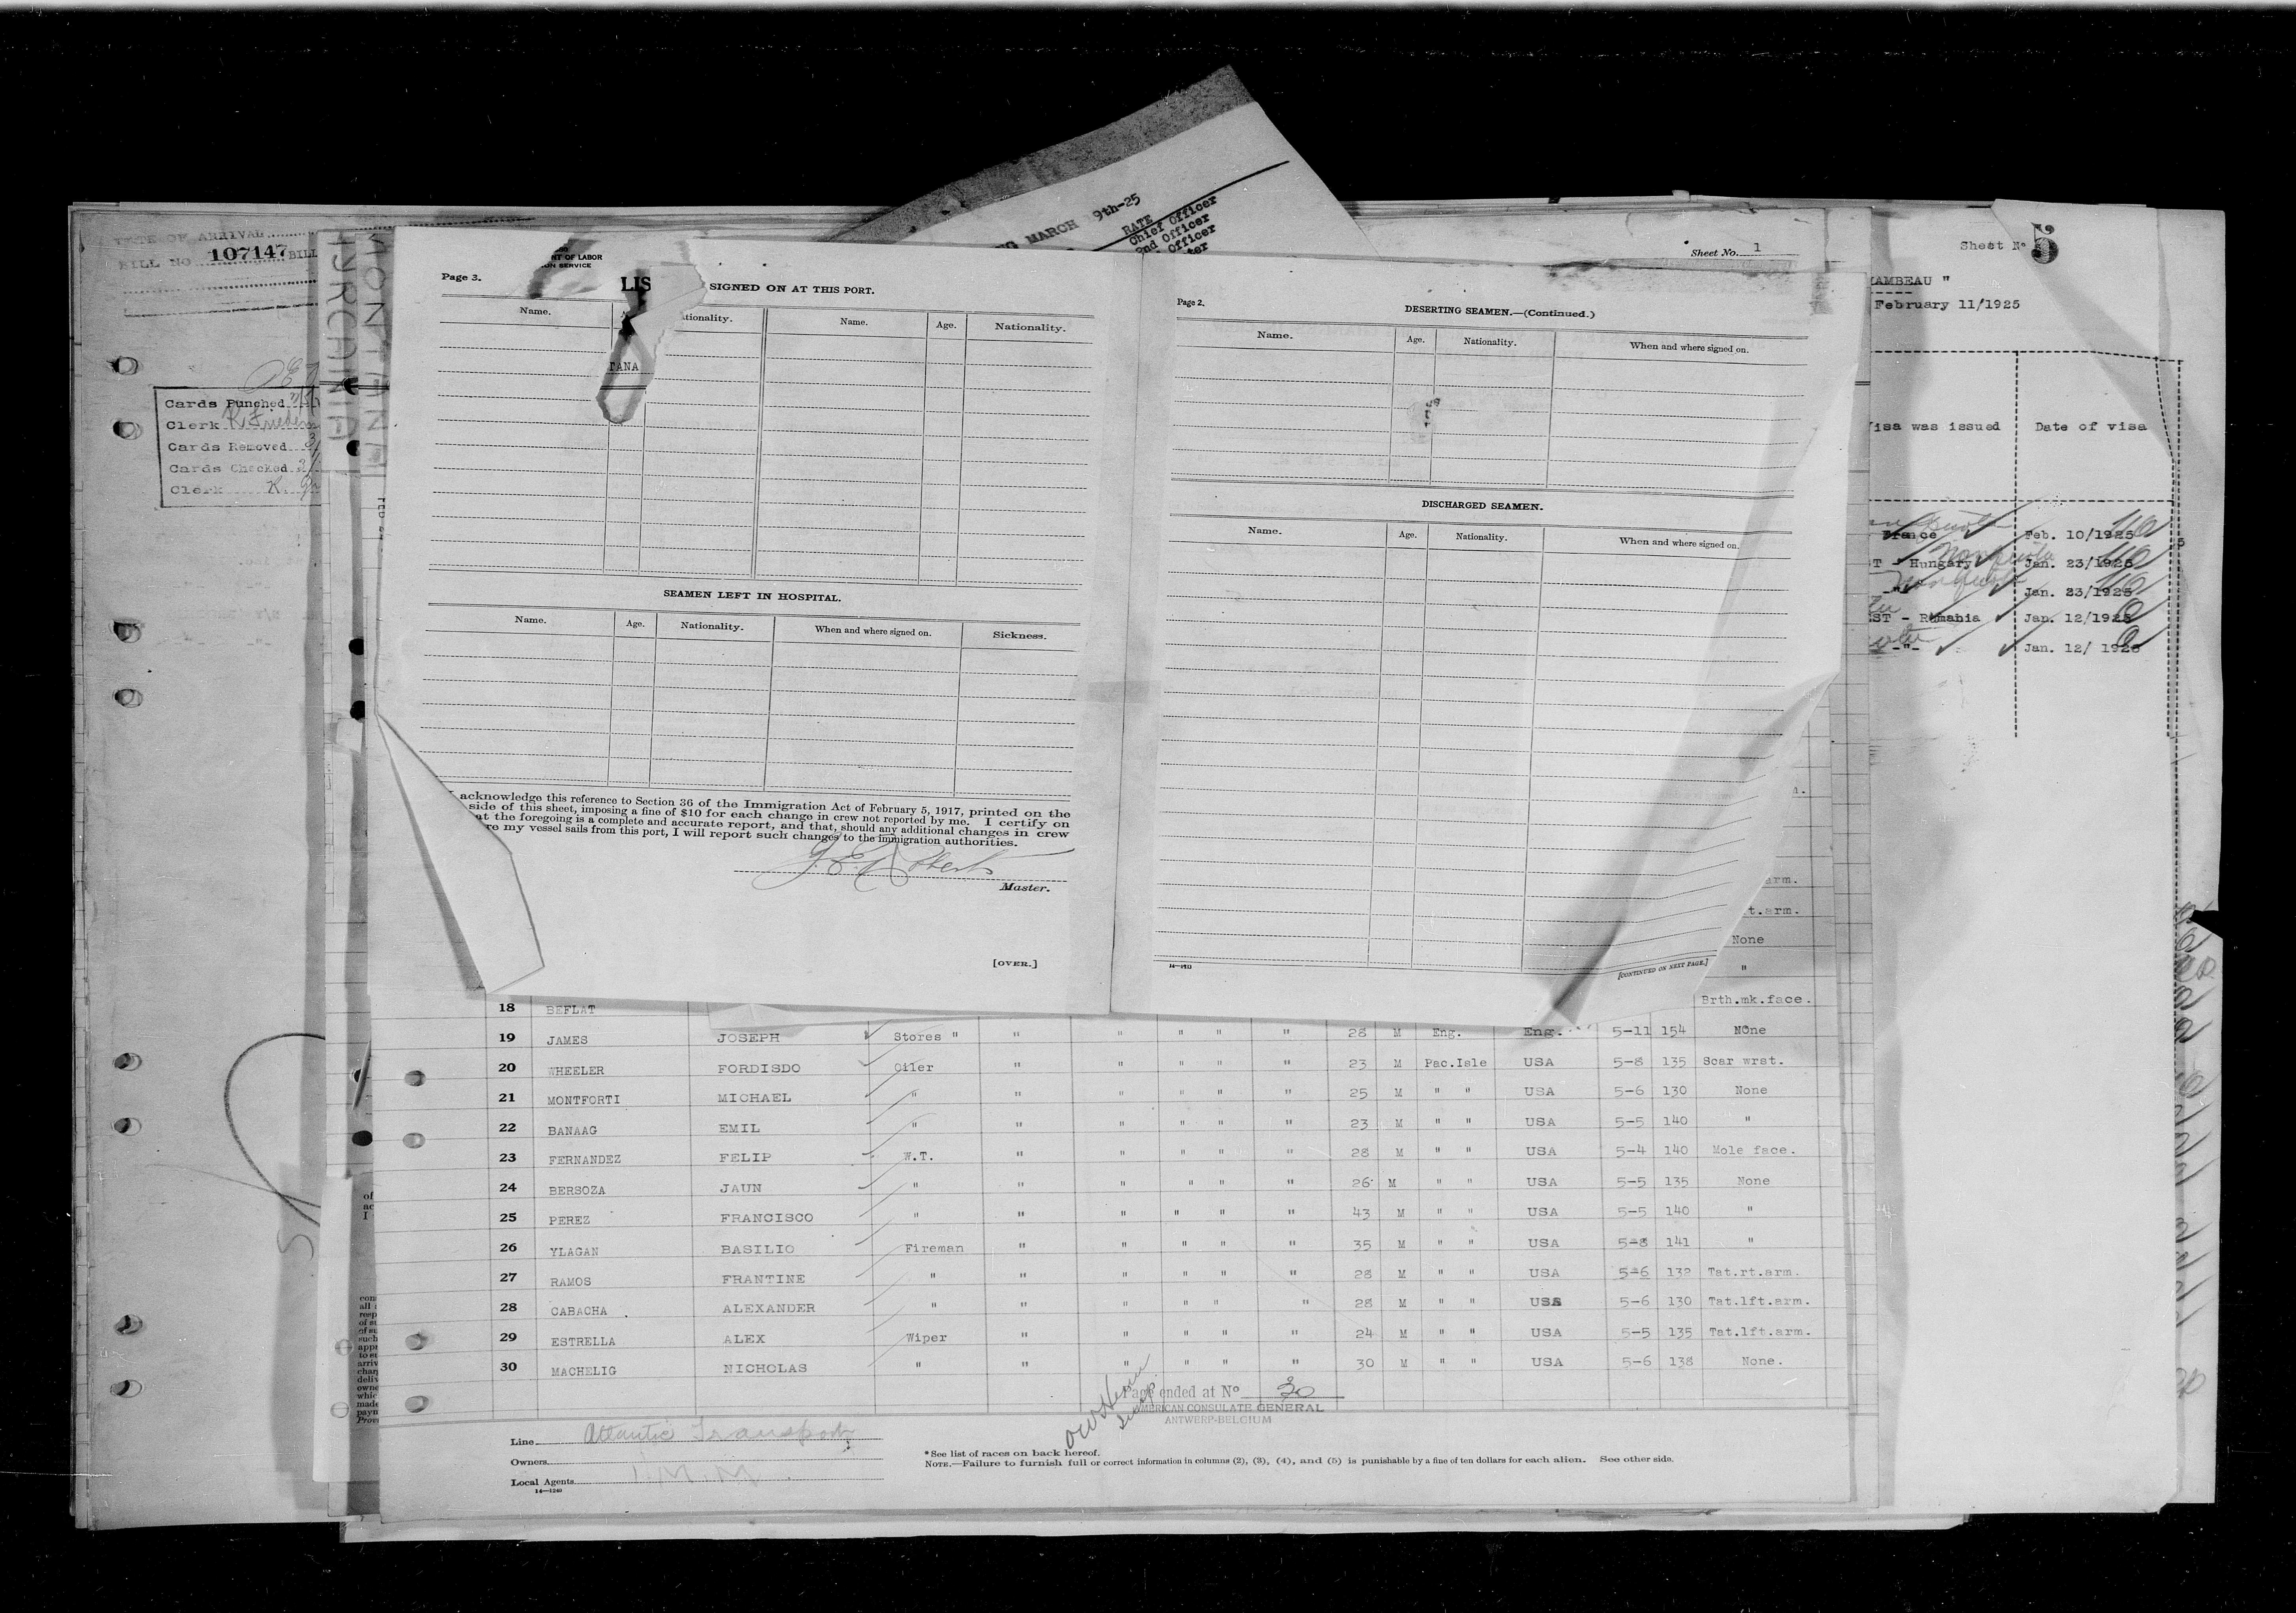 DATE OF ARRIVAL
BILL NO. 107147 BILL
Cards Punched
Clerk
Cards Removed
Cards Checked
Clerk K.
MONTANA
HYRCANIA
MARCH 9th-25
RATE
Chief Officer
2nd Officer
Officer
Sheet No. 1
Sheet No 5
AMBEAU "
February 11/1925
isa was issued Date of visa
France Feb. 10/1925
T - Hungary Jan. 23/1925
-"- Jan. 23/1925
ST - Rumania Jan. 12/1925
-"- Jan. 12/ 1925
NT OF LABOR
ON SERVICE
Page 3.
LIS SIGNED ON AT THIS PORT.
Name. A ationality. Name. Age. Nationality.
TANA
SEAMEN LEFT IN HOSPITAL.
Name. Age. Nationality. When and where signed on. Sickness.
I acknowledge this reference to Section 36 of the Immigration Act of February 5, 1917, printed on the
side of this sheet, imposing a fine of $10 for each change in crew not reported by me. I certify on
at the foregoing is a complete and accurate report, and that, should any additional changes in crew
re my vessel sails from this port, I will report such changes to the immigration authorities.
Master.
[OVER.]
Page 2.
DESERTING SEAMEN.—(Continued.)
Name. Age. Nationality. When and where signed on.
DISCHARGED SEAMEN.
Name. Age. Nationality. When and where signed on.
[CONTINUED ON NEXT PAGE.]
arm.
t.arm.
None
"
18 BEFLAT Brth.mk.face.
19 JAMES JOSEPH Stores " " " " " " 28 M Eng. Eng. 5-11 154 NOne
20 WHEELER FORDISDO Oiler " " " " " 23 M Pac.Isle USA 5-8 135 Scar wrst.
21 MONTFORTI MICHAEL " " " " " " 25 M " " USA 5-6 130 None
22 BANAAG EMIL " " " " " " 23 M " " USA 5-5 140 "
23 FERNANDEZ FELIP W.T. " " " " " 28 M " " USA 5-4 140 Mole face.
24 BERSOZA JAUN " " " " " " 26 M " " USA 5-5 135 None
25 PEREZ FRANCISCO " " " " " " 43 M " " USA 5-5 140 "
26 YLAGAN BASILIO Fireman " " " " " 35 M " " USA 5-8 141 "
27 RAMOS FRANTINE " " " " " " 28 M " " USA 5-6 132 Tat.rt.arm.
28 CABACHA . ALEXANDER " " " " " " 28 M " " USA 5-6 130 Tat.lft.arm.
29 ESTRELLA ALEX Wiper " " " " " 24 M " " USA 5-5 135 Tat.lft.arm.
30 MACHELIG NICHOLAS " " " " " " 30 M " " USA 5-6 138 None.
Page ended at No 30
AMERICAN CONSULATE GENERAL
ANTWERP-BELGIUM
Line Atlantic Transport
Owners
Local Agents I.M.M.
14—1240
*See list of races on back hereof.
NOTE.—Failure to furnish full or correct information in columns (2), (3), (4), and (5) is punishable by a fine of ten dollars for each alien. See other side.